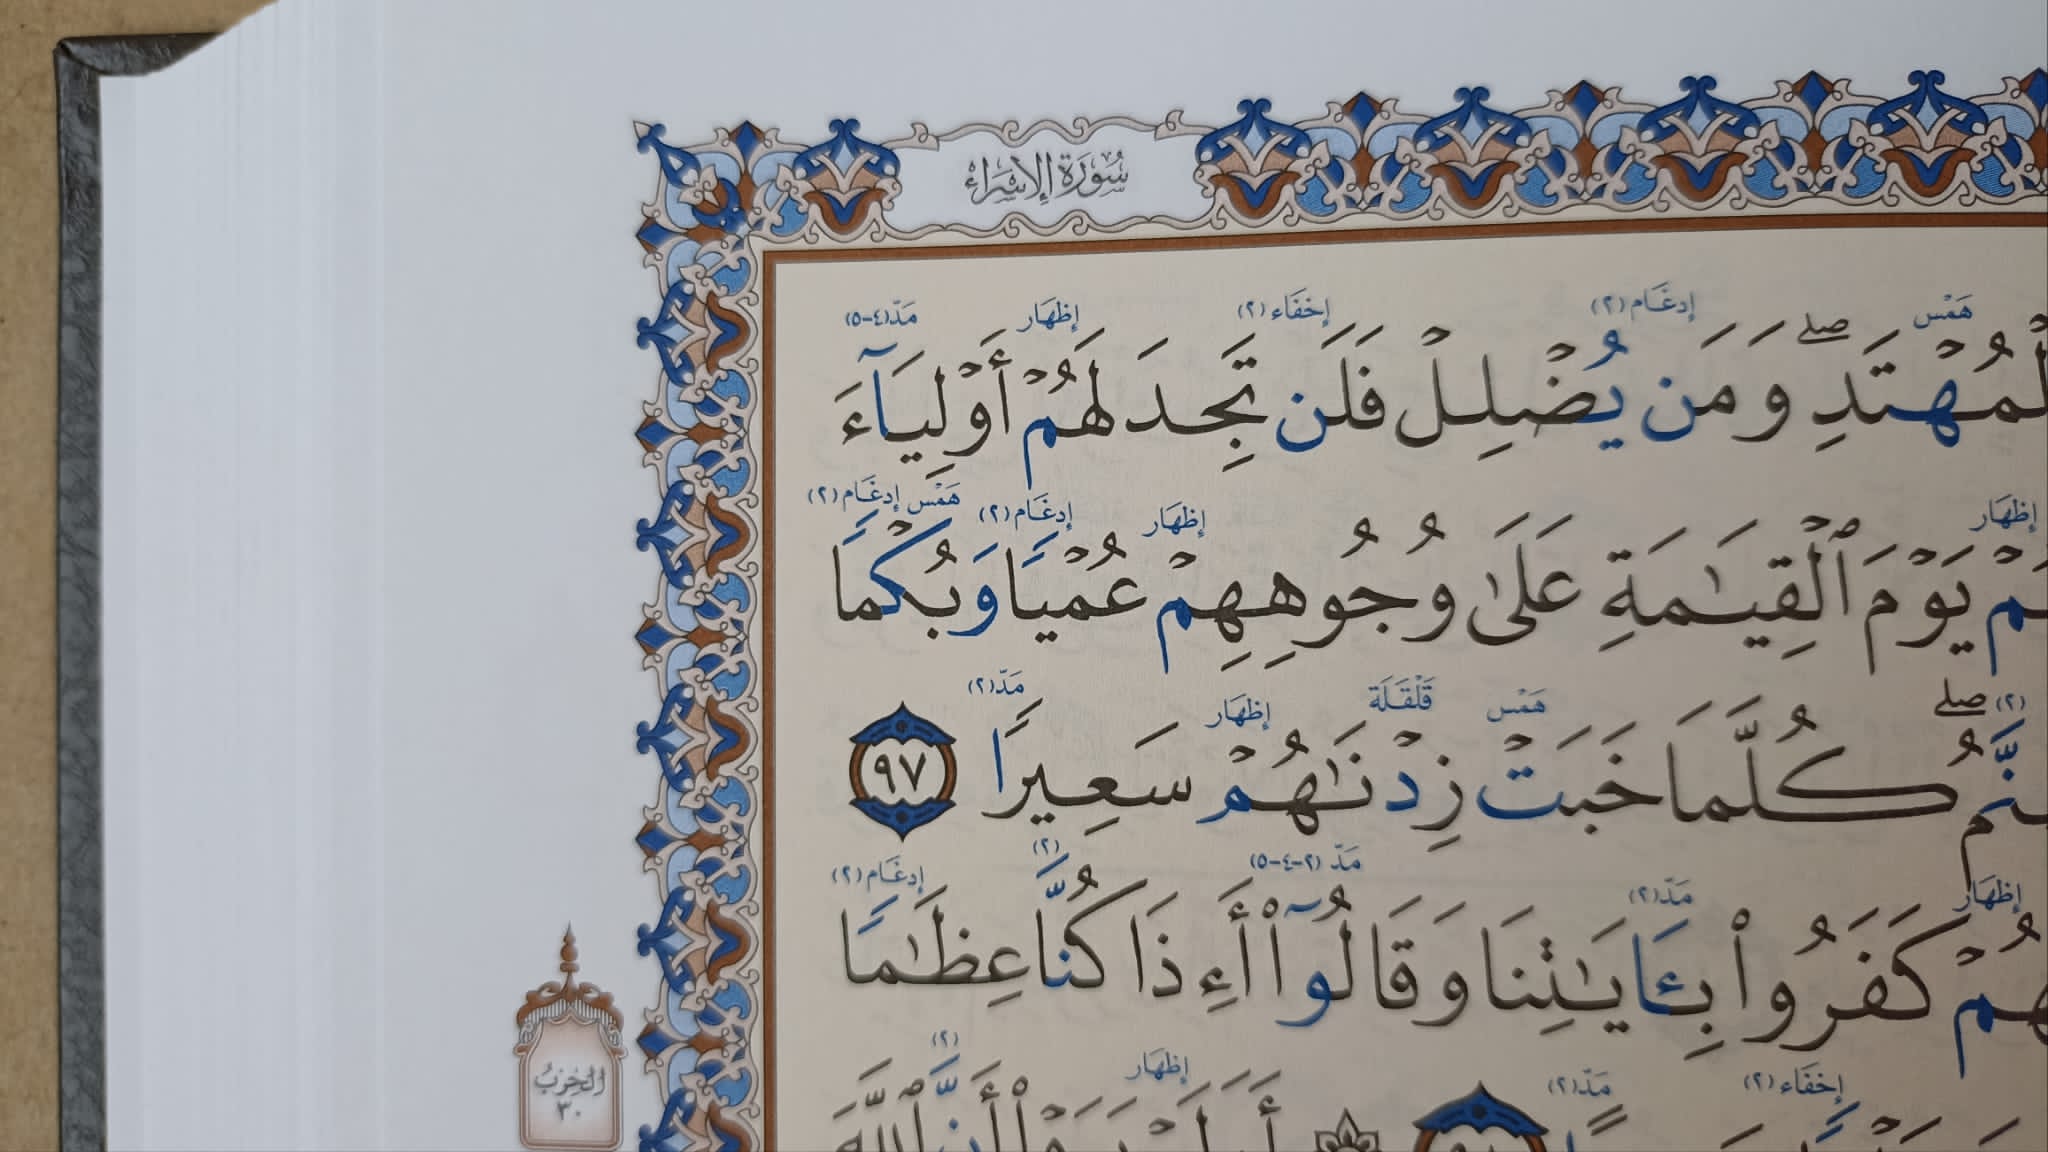 سُورَةُ الإِسْرَاءِ
هَمْس إِدغَام (٢) إِخفَاء (٢) إِظهَار مَدّ (٤-٥)
لْمُهْتَدِ ۖ وَمَن يُضْلِلْ فَلَن تَجِدَ لَهُمْ أَوْلِيَآءَ
إِظهَار إِظهَار إِدغَام (٢) هَمْس إِدغَام (٢)
مْ يَوْمَ ٱلْقِيَـٰمَةِ عَلَىٰ وُجُوهِهِمْ عُمْيًا وَبُكْمًا
(٢) هَمْس قَلْقَلَة إِظهَار مَدّ (٢)
نَّمُ ۖ كُلَّمَا خَبَتْ زِدْنَـٰهُمْ سَعِيرًا ٩٧
إِظهَار مَدّ (٢) مَدّ (٢-٤-٥) (٢) إِدغَام (٢)
هُمْ كَفَرُوا۟ بِـَٔايَـٰتِنَا وَقَالُوٓا۟ أَءِذَا كُنَّا عِظَـٰمًا
إِخفَاء (٢) مَدّ (٢) إِظهَار (٢)
أَوَلَمْ يَرَوْا۟ أَنَّ ٱللَّهَ
الحِزبُ
٣٠